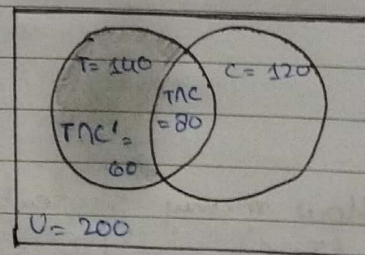 T = 140
C = 120
T∩C
= 80
T∩C' =
60
U = 200